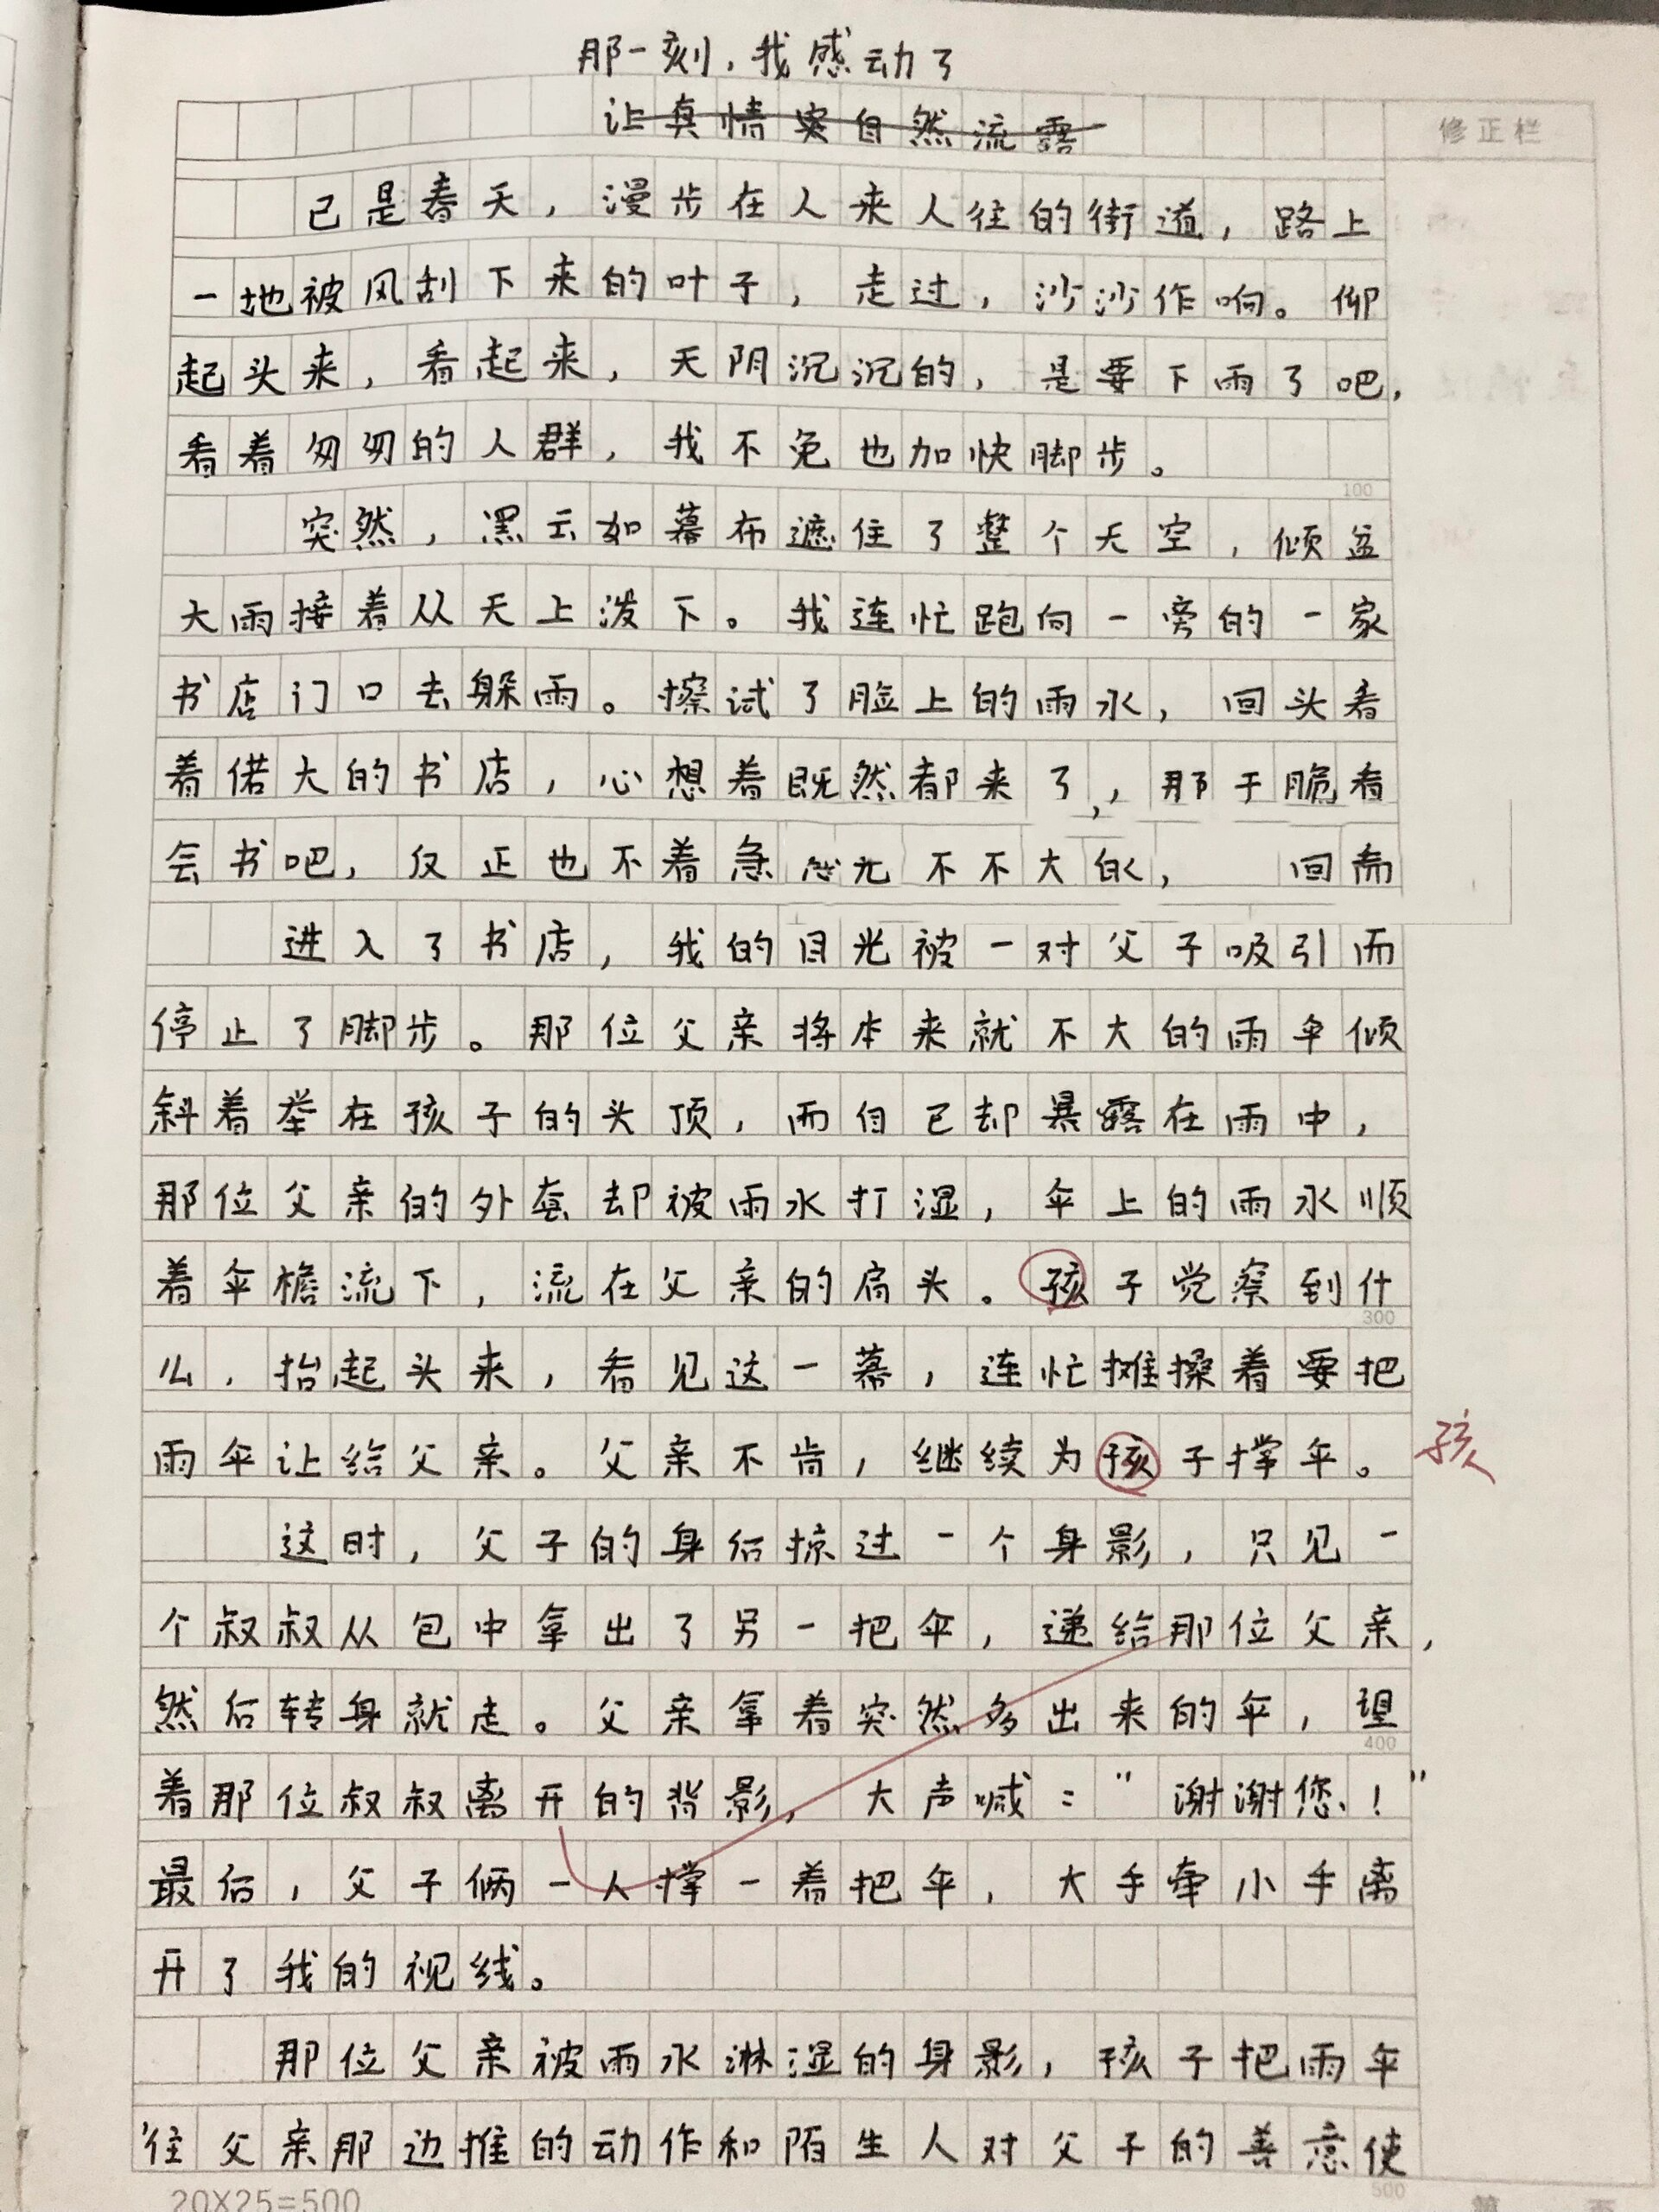 那一刻，我感动了
让真情实自然流露
修正栏
已是春天，漫步在人来人往的街道，路上
一地被风刮下来的叶子，走过，沙沙作响。仰
起头来，看起来，天阴沉沉的，是要下雨了吧，
看着匆匆的人群，我不免也加快脚步。
100
突然，黑云如幕布遮住了整个天空，倾盆
大雨接着从天上泼下。我连忙跑向一旁的一家
书店门口去躲雨。擦试了脸上的雨水，回头看
着偌大的书店，心想着既然都来了，那干脆看
会书吧，反正也不着急 不不大 ， 回
进入了书店，我的目光被一对父子吸引而
停止了脚步。那位父亲将本来就不大的雨伞倾
斜着举在孩子的头顶，而自己却暴露在雨中，
那位父亲的外套却被雨水打湿，伞上的雨水顺
着伞檐流下，流在父亲的肩头。孩子觉察到什
300
么，抬起头来，看见这一幕，连忙摊搡着要把
雨伞让给父亲。父亲不肯，继续为孩子撑伞。
孩
这时，父子的身后掠过一个身影，只见一
个叔叔从包中拿出了另一把伞，递给那位父亲，
然后转身就走。父亲拿着突然多出来的伞，望
400
着那位叔叔离开的背影，大声喊："谢谢您！"
最后，父子俩一人撑一着把伞，大手牵小手离
开了我的视线。
那位父亲被雨水淋湿的身影，孩子把雨伞
往父亲那边推的动作和陌生人对父子的善意使
20X25=500
500
第